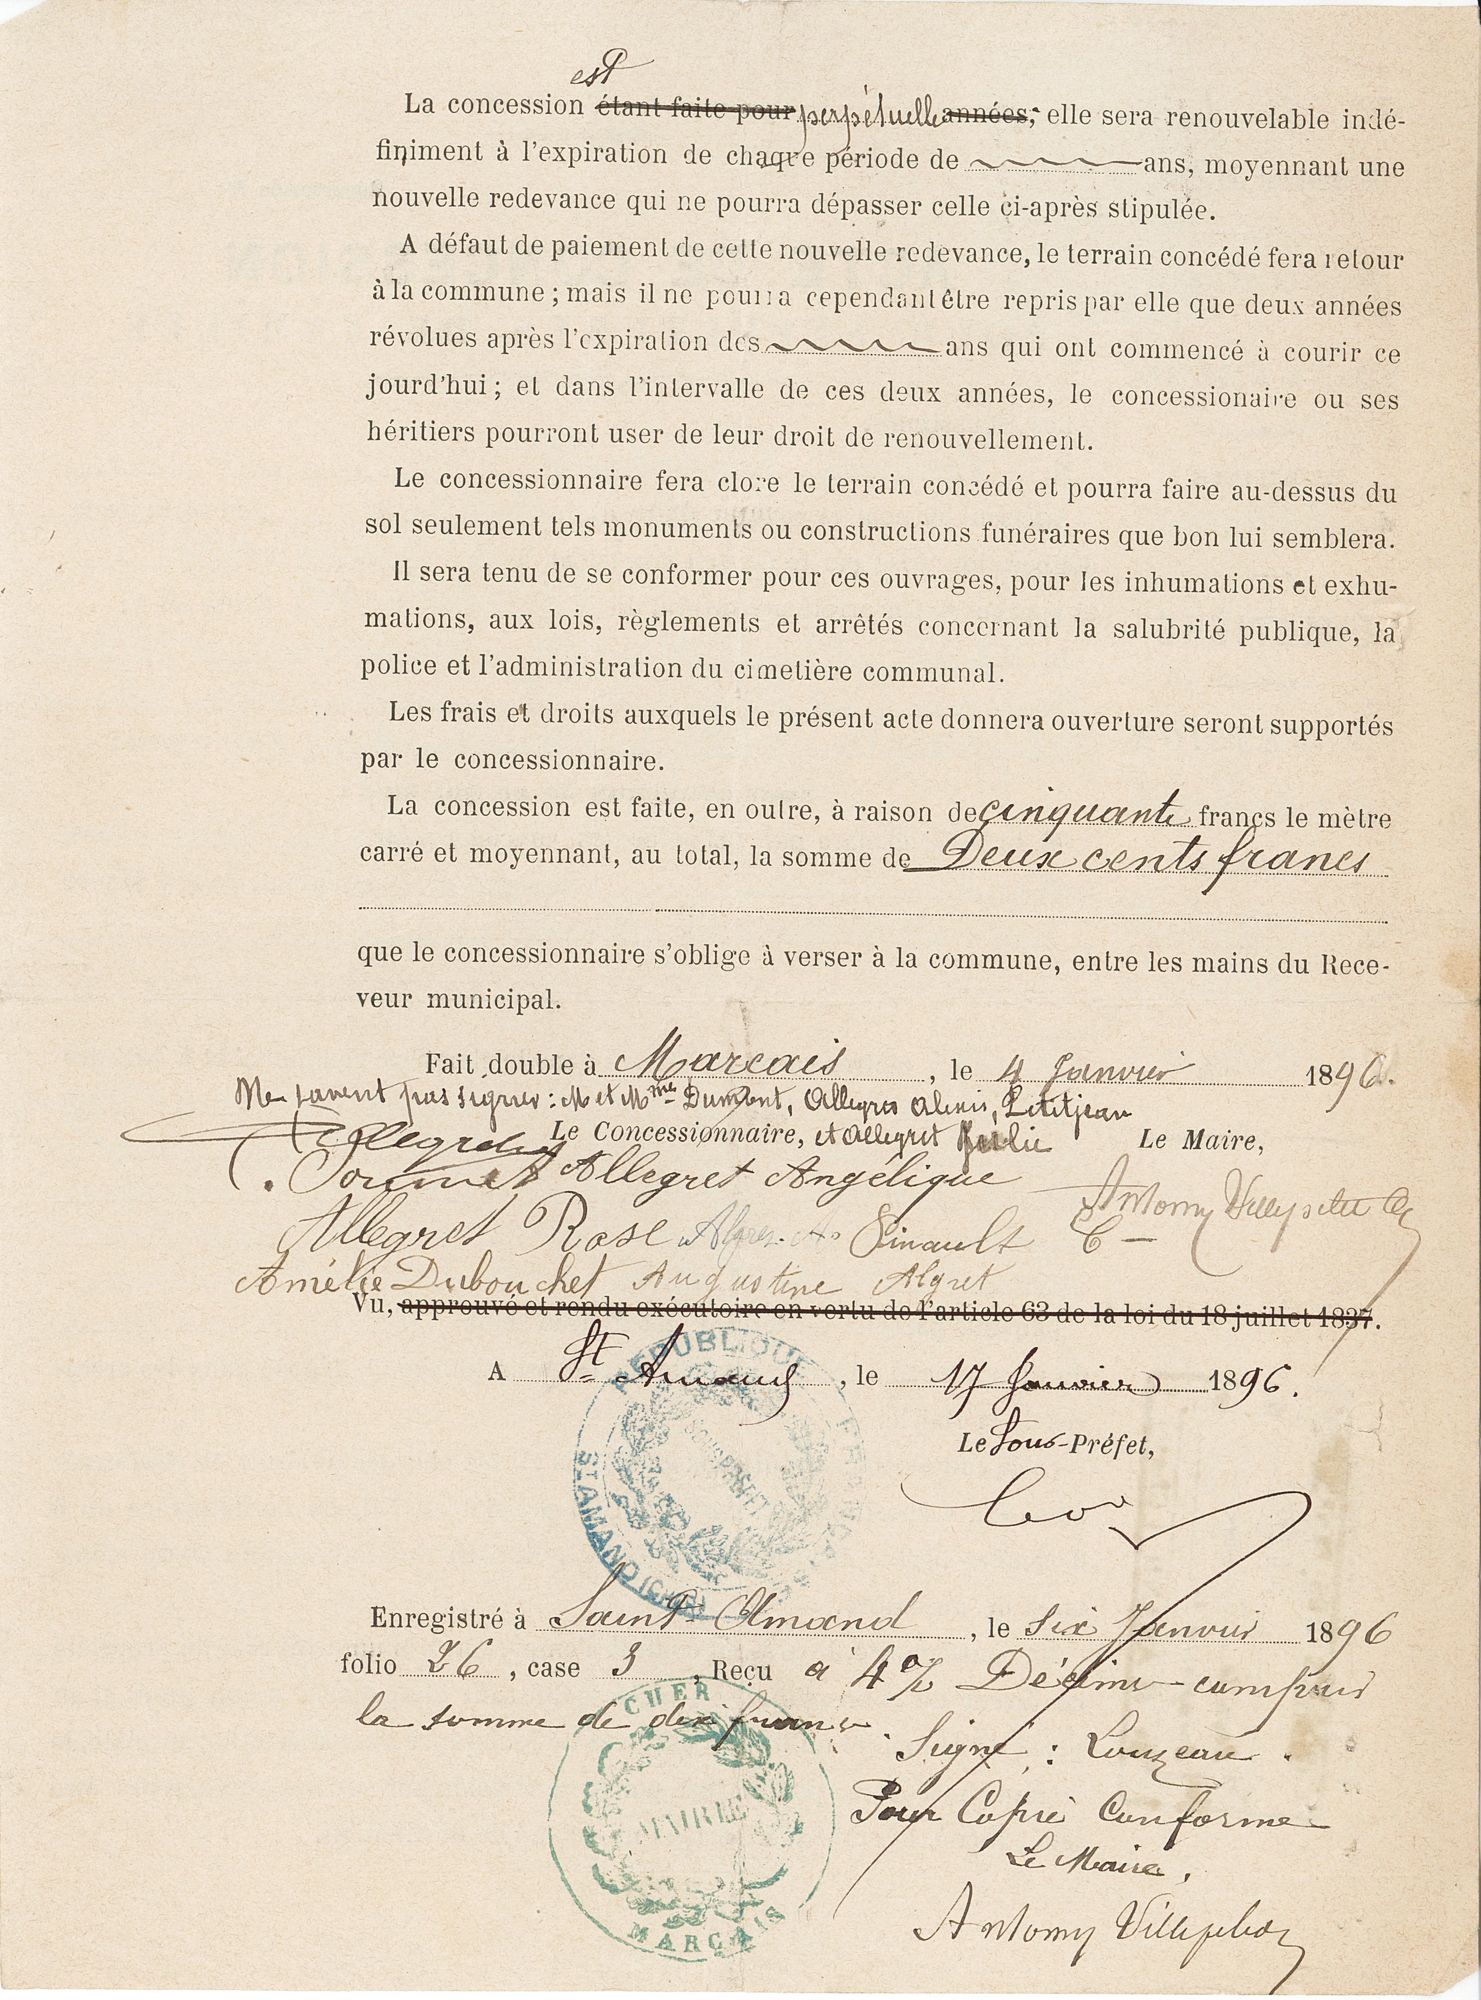 est
La concession étant faite pour perpétuelle années, elle sera renouvelable indé-
finiment à l'expiration de chaque période de ans, moyennant une
nouvelle redevance qui ne pourra dépasser celle ci-après stipulée.
A défaut de paiement de cette nouvelle redevance, le terrain concédé fera retour
à la commune ; mais il ne pourra cependant être repris par elle que deux années
révolues après l'expiration des ans qui ont commencé à courir ce
jourd'hui ; et dans l'intervalle de ces deux années, le concessionaire ou ses
héritiers pourront user de leur droit de renouvellement.
Le concessionnaire fera clore le terrain concédé et pourra faire au-dessus du
sol seulement tels monuments ou constructions funéraires que bon lui semblera.
Il sera tenu de se conformer pour ces ouvrages, pour les inhumations et exhu-
mations, aux lois, règlements et arrêtés concernant la salubrité publique, la
police et l'administration du cimetière communal.
Les frais et droits auxquels le présent acte donnera ouverture seront supportés
par le concessionnaire.
La concession est faite, en outre, à raison de cinquante francs le mètre
carré et moyennant, au total, la somme de Deux cents francs
que le concessionnaire s'oblige à verser à la commune, entre les mains du Rece-
veur municipal.
Fait double à Marcais, le 4 Janvier 1896.
Ne savent pas signer : M et Mme Dumont, Allegret Alexis, Petitjean
Le Concessionnaire, et Allegret Julie Le Maire,
Allegret Angélique
Allegret Rose Pinault C
Amélie Dubouchet Augustine Algret
Vu, approuvé et rendu exécutoire en vertu de l'article 63 de la loi du 18 juillet 1837.
A St Amand, le 17 Janvier 1896.
REPUBLIQUE
ST AMAND (CHER)
Le Sous-Préfet,
Enregistré à Saint-Amand, le Six Janvier 1896
folio 26, case 3, Reçu à 4% Décime compris
la somme de dix francs
Signé : Louzeau.
Pour Copie Conforme
Le Maire,
Antony
CHER
MAIRIE
MARÇAIS